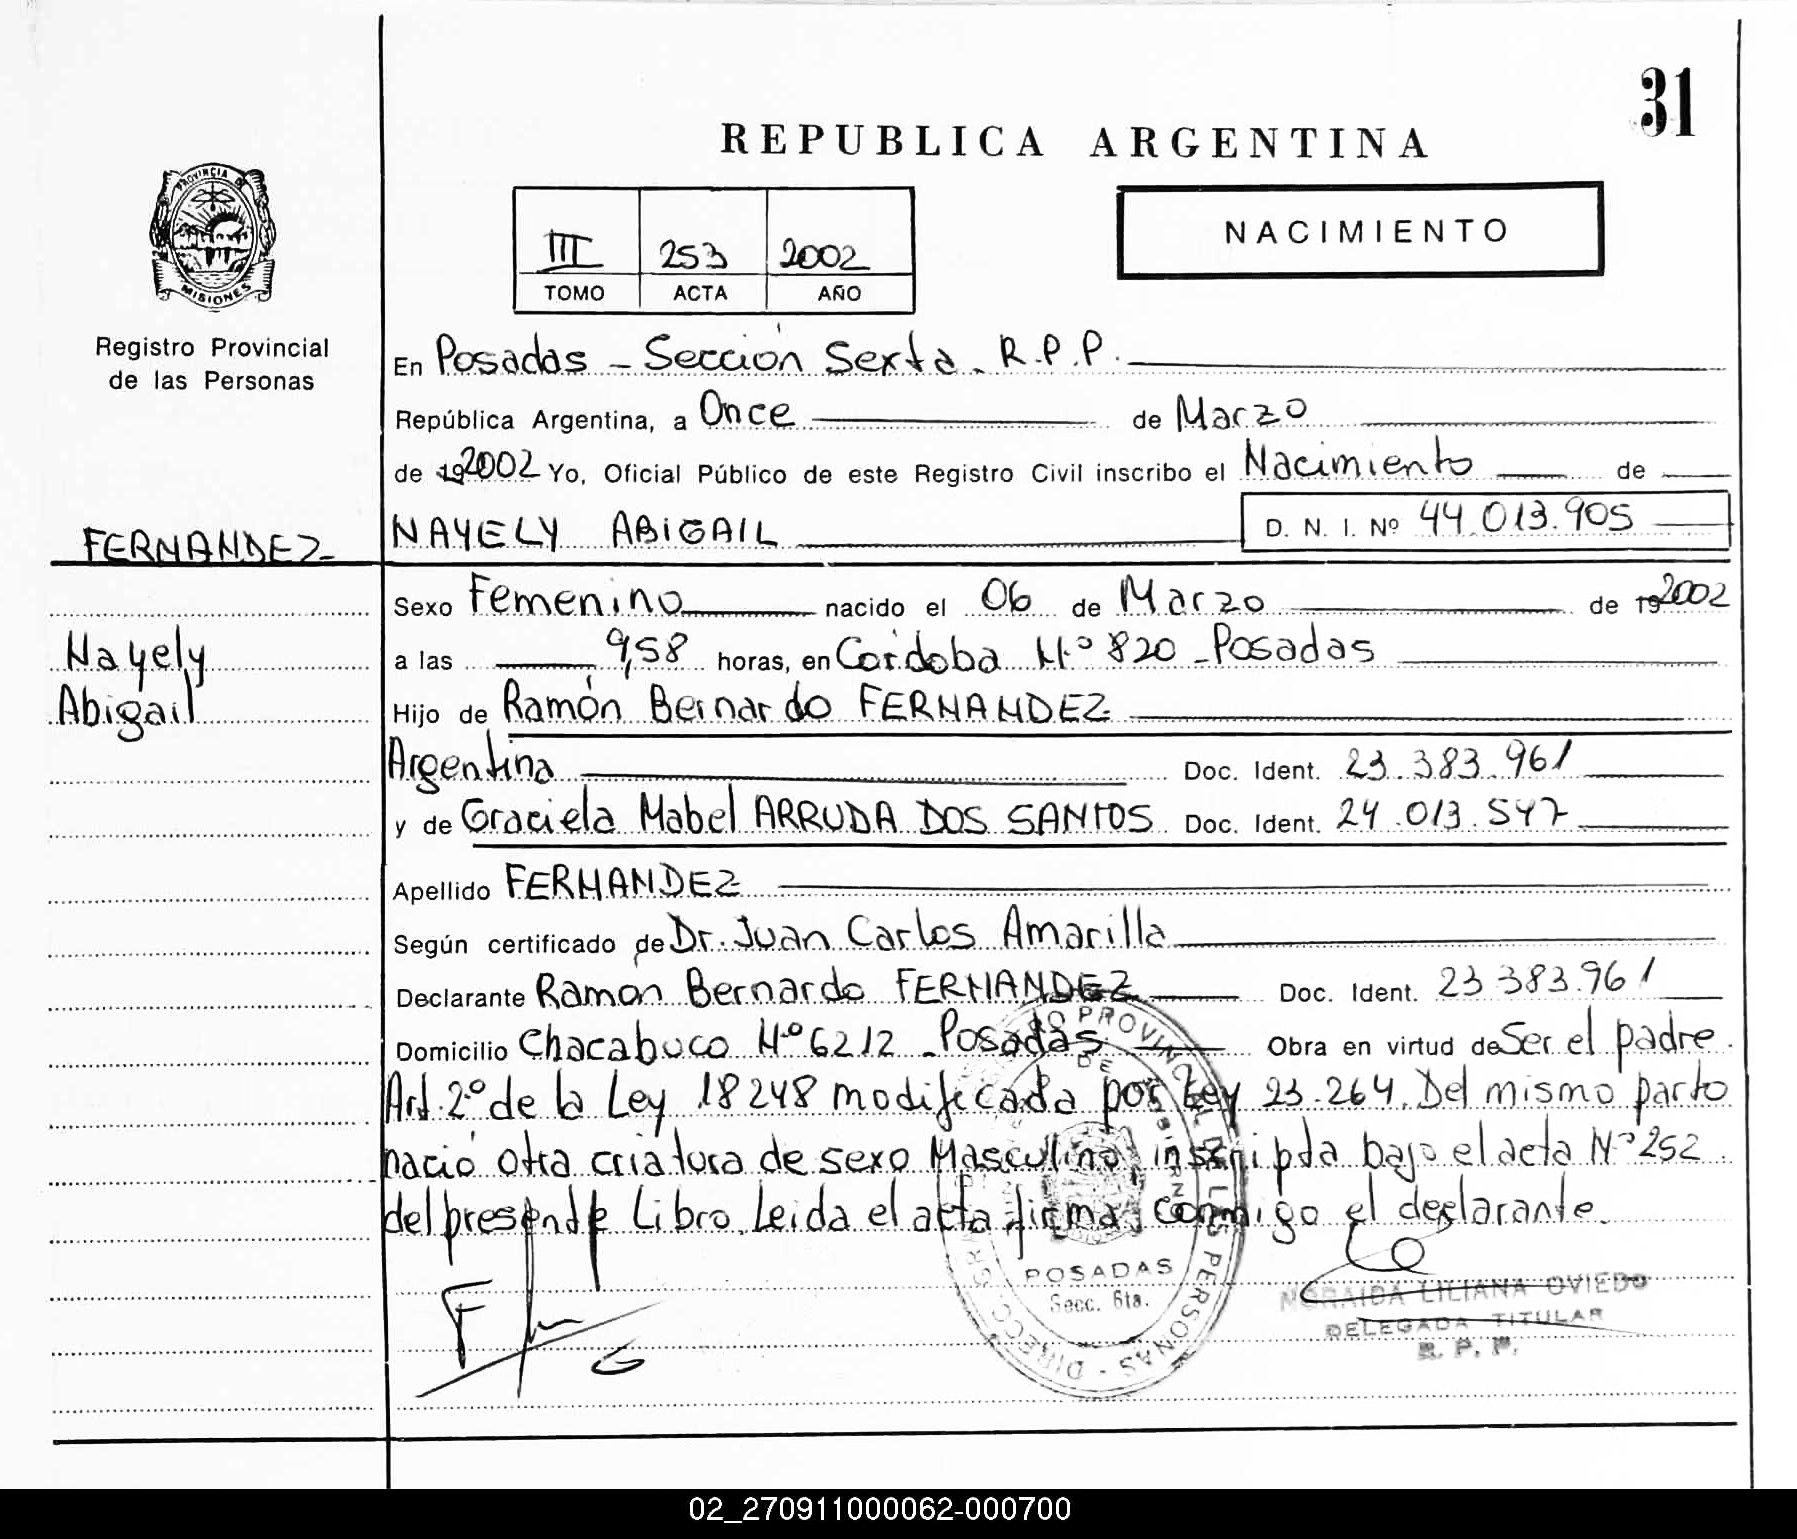 31
REPUBLICA ARGENTINA
PROVINCIA DE
MISIONES
Registro Provincial
de las Personas
III 253 2002
TOMO ACTA AÑO
NACIMIENTO
En Posadas - Sección Sexta. R.P.P.
República Argentina, a Once de Marzo
de 192002 Yo, Oficial Público de este Registro Civil inscribo el Nacimiento de
FERNANDEZ NAYELY ABIGAIL D. N. I. Nº 44.013.905
Sexo Femenino nacido el 06 de Marzo de 192002
Nayely
a las 9,58 horas, en Córdoba Nº 820 - Posadas
Abigail
Hijo de Ramón Bernardo FERNANDEZ
Argentina Doc. Ident. 23.383.961
y de Graciela Mabel ARRUDA DOS SANTOS Doc. Ident. 24.013.547
Apellido FERNANDEZ
Según certificado de Dr. Juan Carlos Amarilla
Declarante Ramón Bernardo FERNANDEZ Doc. Ident. 23.383.961
Domicilio Chacabuco Nº 6212 - Posadas Obra en virtud de Ser el padre.
Art. 2º de la Ley 18248 modificada por Ley 23.264. Del mismo parto
nació otra criatura de sexo Masculino, inscripta bajo el acta Nº 252
del presente Libro. Leida el acta firma conmigo el declarante.
POSADAS
Secc. 6ta.
NORAIDA LILIANA OVIEDO
DELEGADA TITULAR
R. P. P.
02_270911000062-000700